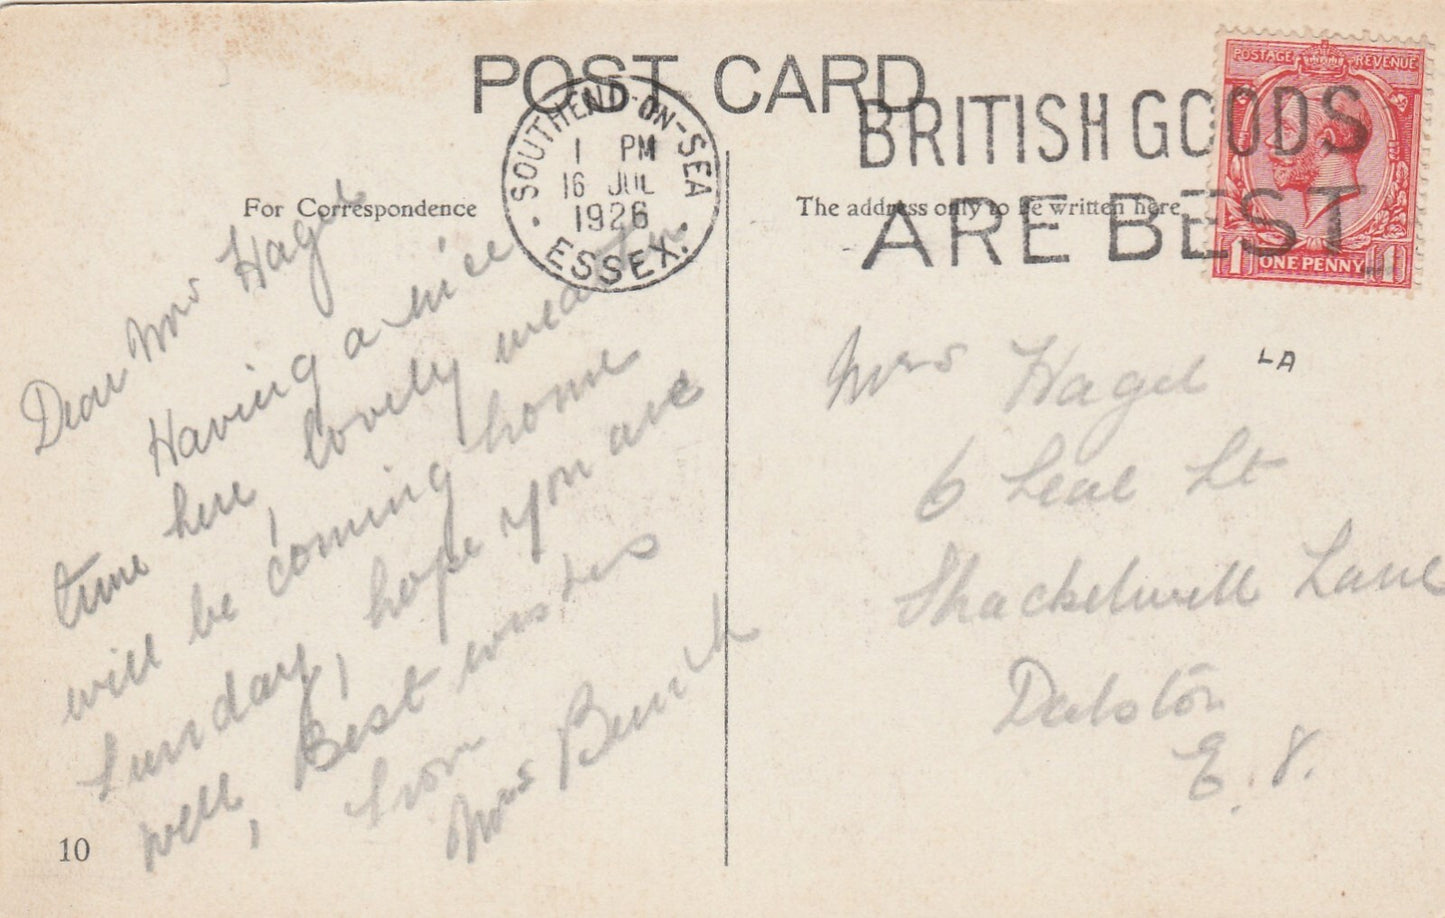 POST CARD
SOUTHEND-ON-SEA
1 PM
16 JUL
1926
ESSEX.
BRITISH GOODS
ARE BEST
POSTAGE REVENUE
1 ONE PENNY 1
For Correspondence
The address only to be written here
Dear Mrs Hagel
Having a nice
time here, lovely weather
will be coming home
Sunday, hope you are
well, Best wishes
from
Mrs
10
Mrs Hagel
LA
6 Seal St
Shackelwell Lane
Dalston
E.8.